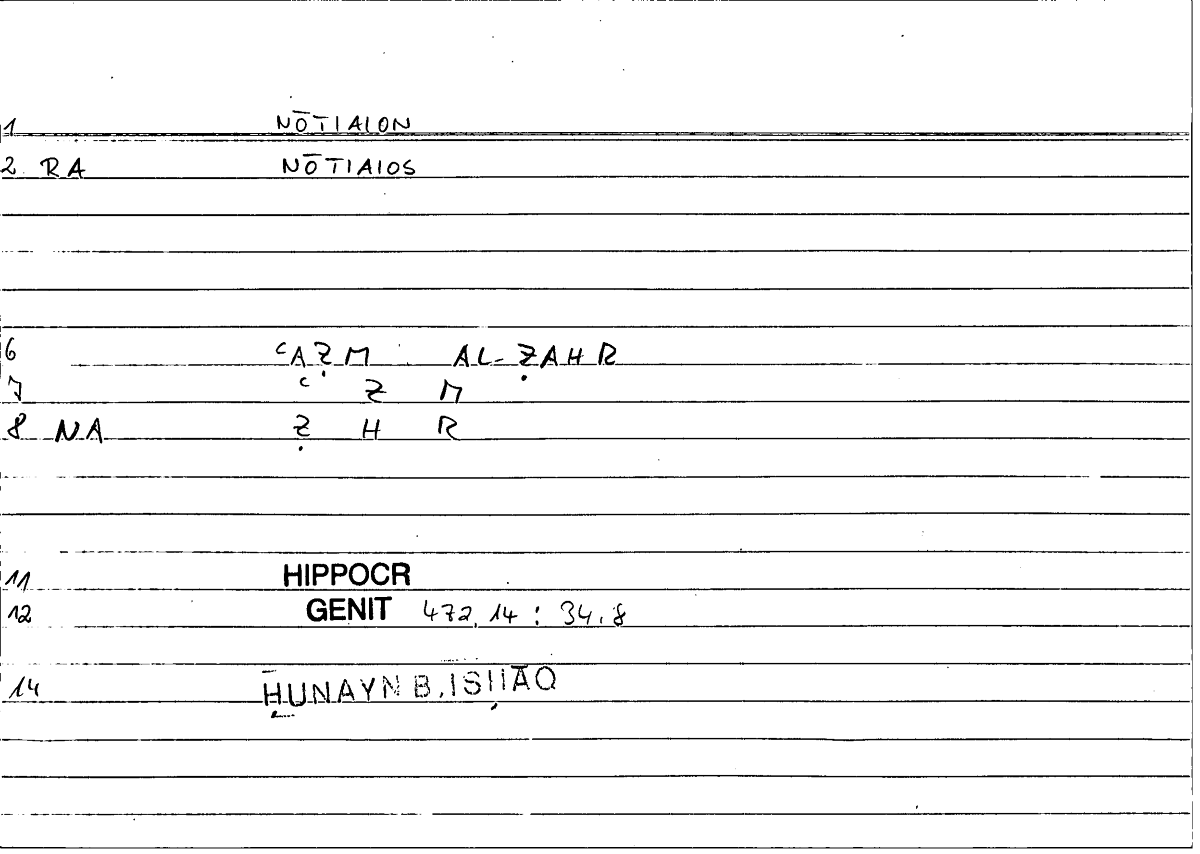 1 NŌTIAION
2 RA NŌTIAIOS
6 ʿAẒM AL-ẒAHR
7 ʿ Ẓ M
8 NA Ẓ H R
11 HIPPOCR
12 GENIT 472,14 : 34.8
14 ḤUNAYN B. ISḤĀQ